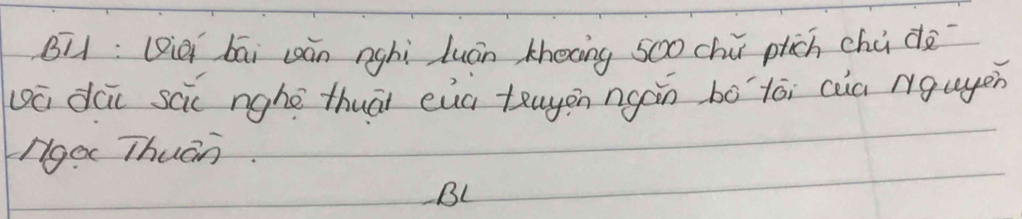 BT1 : Viết bài văn nghị luận khoảng 500 chữ ptích chủ đề
và đặc sắc nghệ thuật của truyện ngắn bố tôi của Nguyễn
Ngọc Thuần .
BL